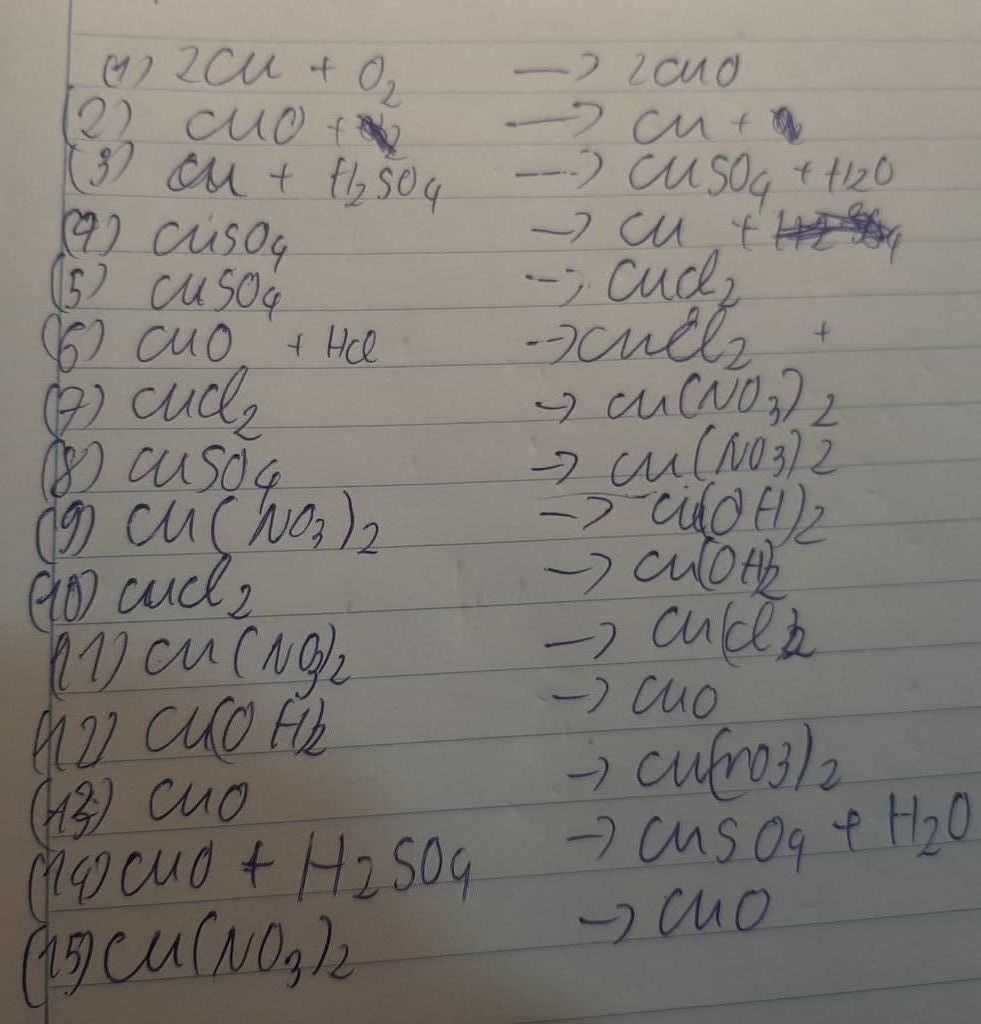 (1) 2Cu + O2 → 2CuO
(2) CuO + → Cu +
(3) Cu + H2SO4 → CuSO4 + H2O
(4) CuSO4 → Cu +
(5) CuSO4 → CuCl2
(6) CuO + HCl → CuCl2 +
(7) CuCl2 → Cu(NO3)2
(8) CuSO4 → Cu(NO3)2
(9) Cu(NO3)2 → Cu(OH)2
(10) CuCl2 → Cu(OH)2
(11) Cu(NO3)2 → CuCl2
(12) Cu(OH)2 → CuO
(13) CuO → Cu(NO3)2
(14) CuO + H2SO4 → CuSO4 + H2O
(15) Cu(NO3)2 → CuO